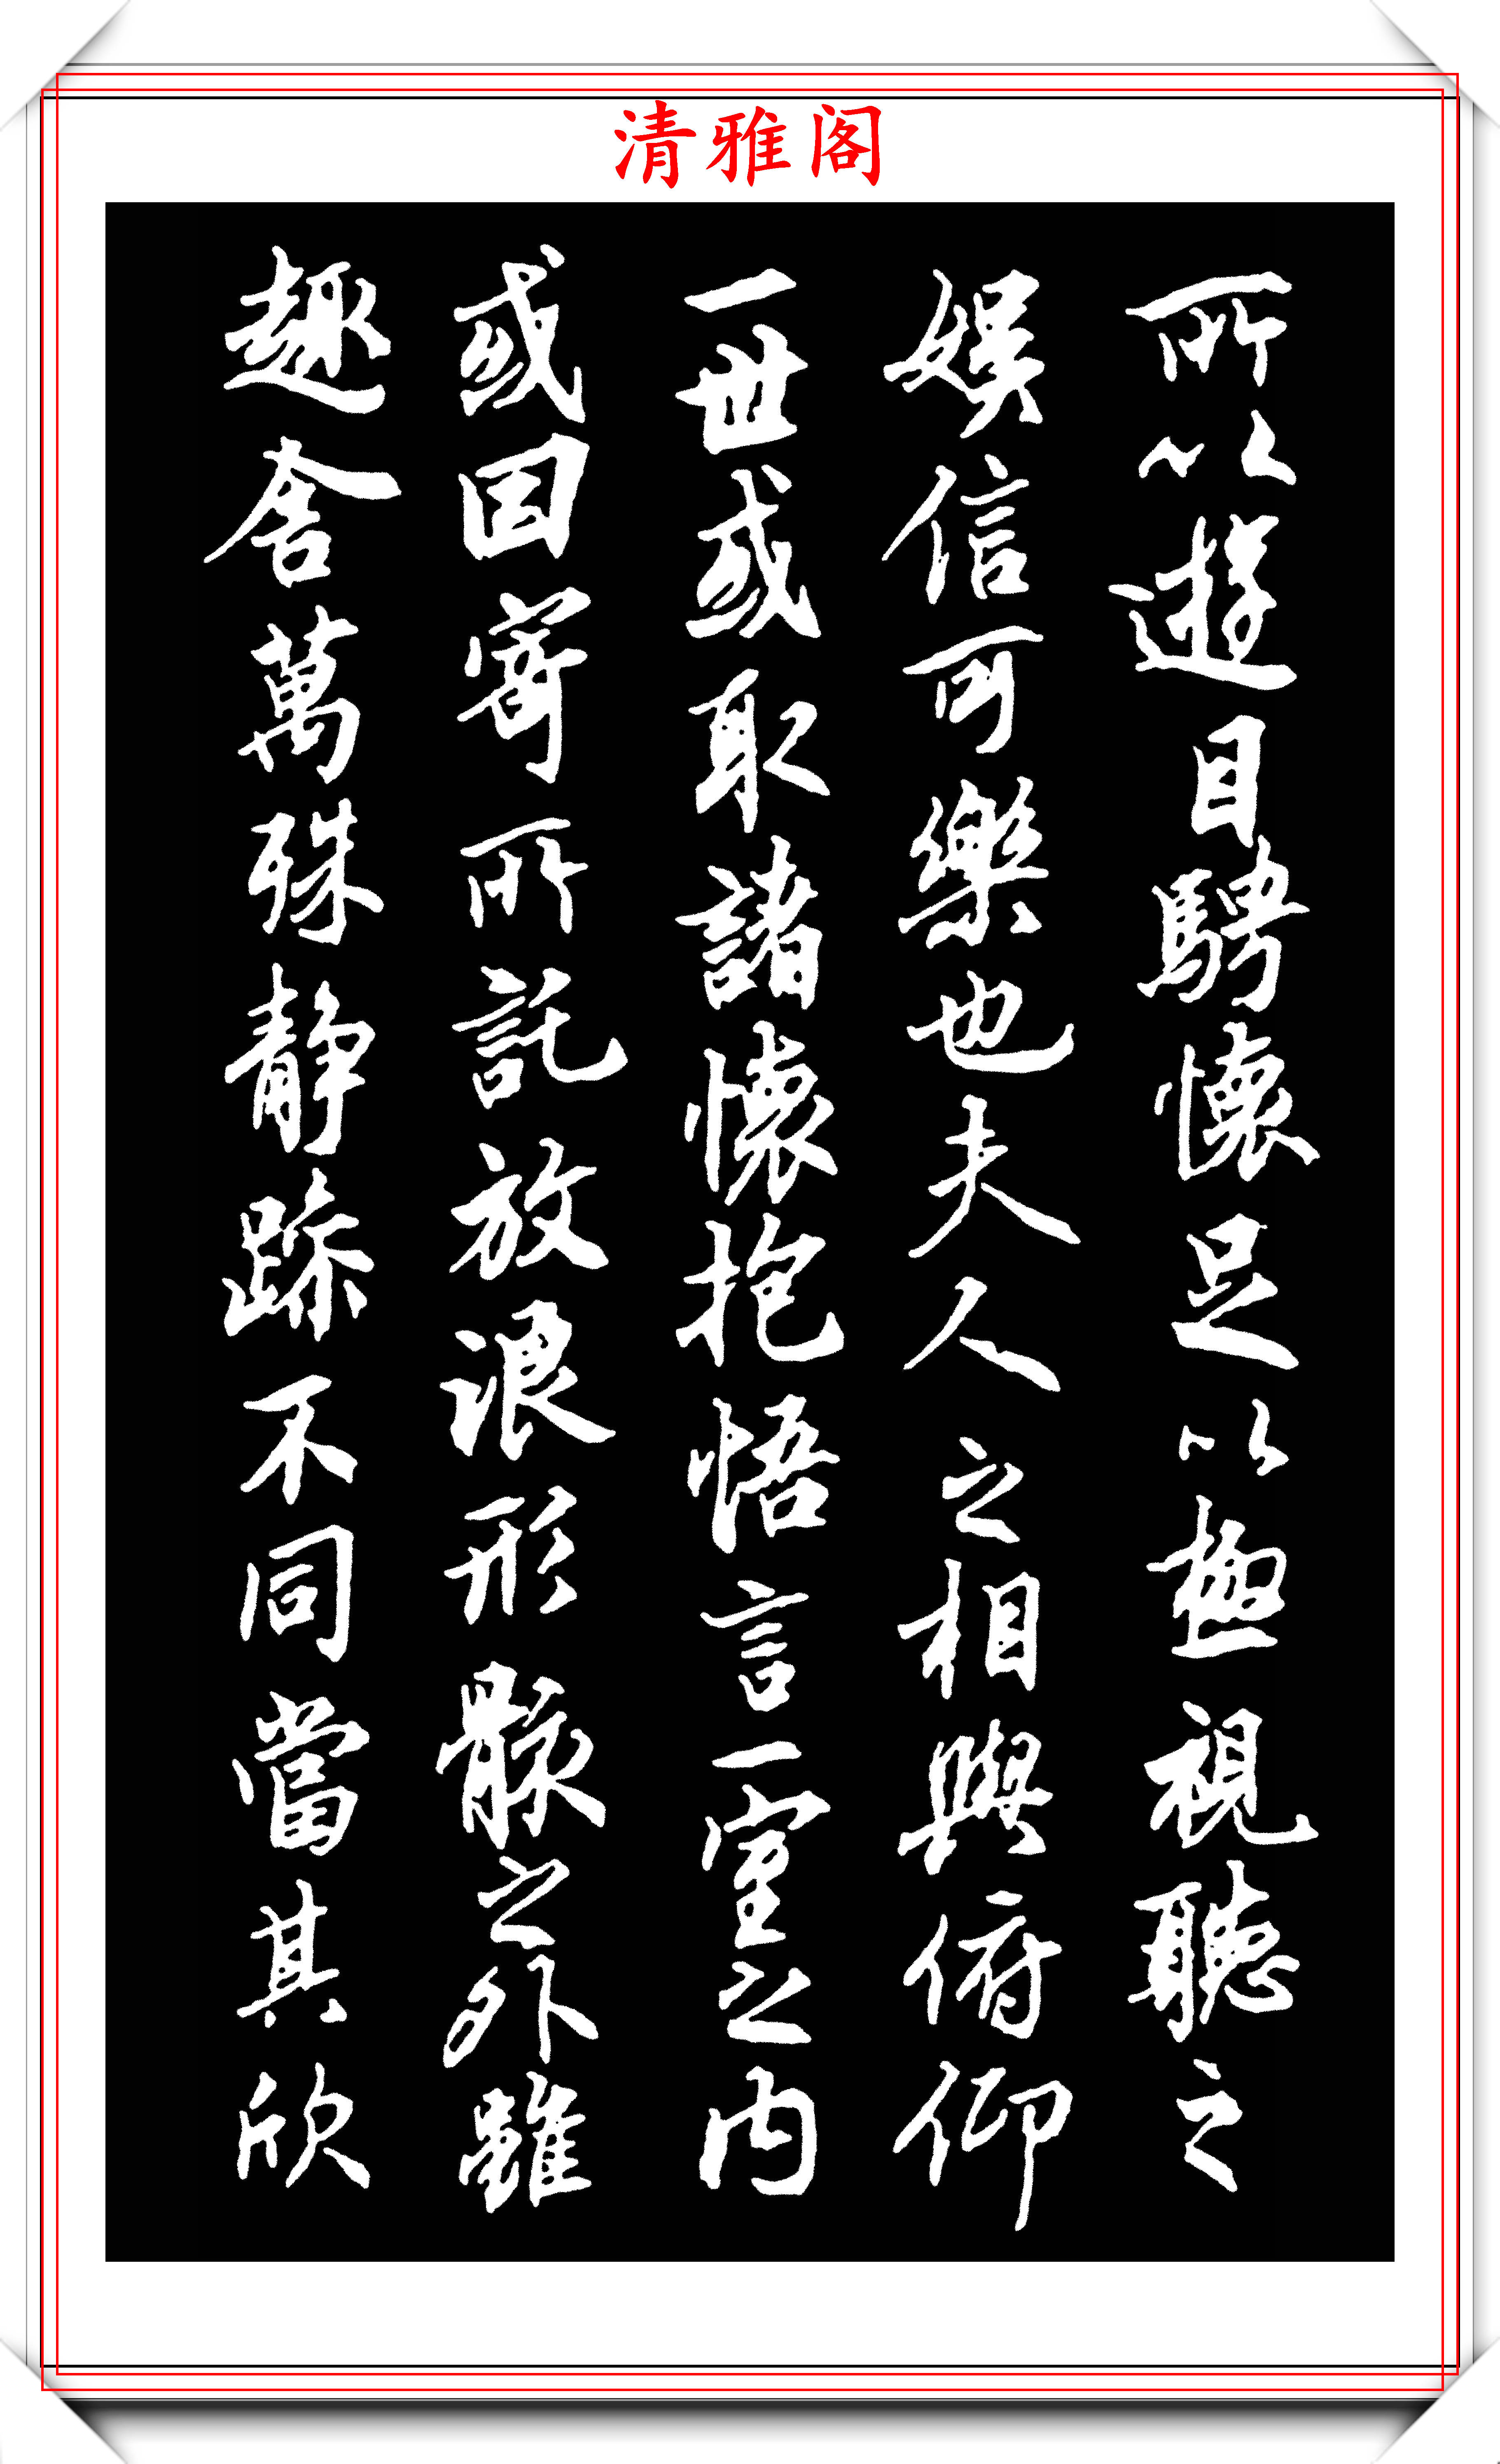 清雅阁
所以遊目騁懷足以極視聽之
娛信可樂也夫人之相與俯仰
一世或取諸懷抱悟言一室之內
或因寄所託放浪形骸之外雖
趣舍萬殊靜躁不同當其欣